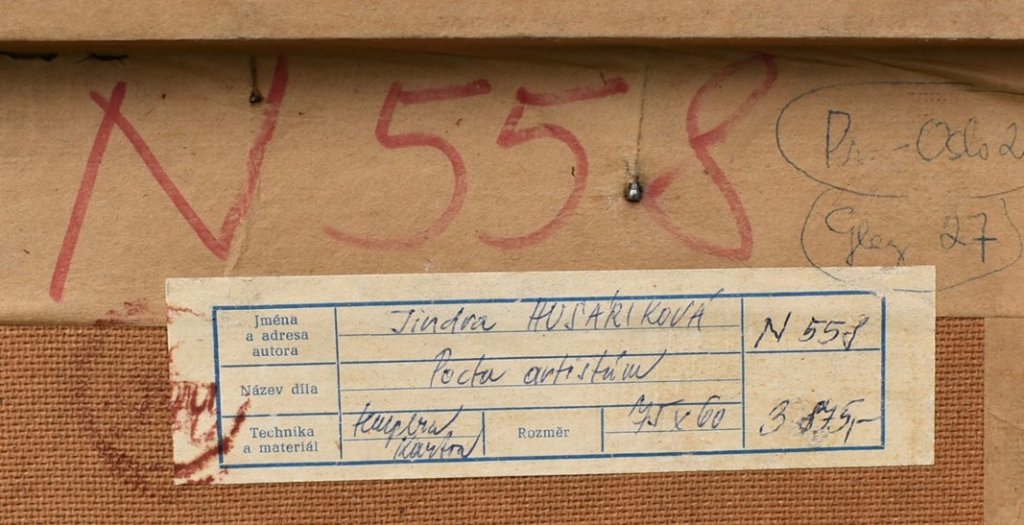 N 558
Oslo 2
27
Jména
a adresa
autora
Jindra HUSÁRIKOVÁ
N 558
Název díla
Pocta artistům
Technika
a materiál
tempera
karton
Rozměr
75 x 60
3 875,-